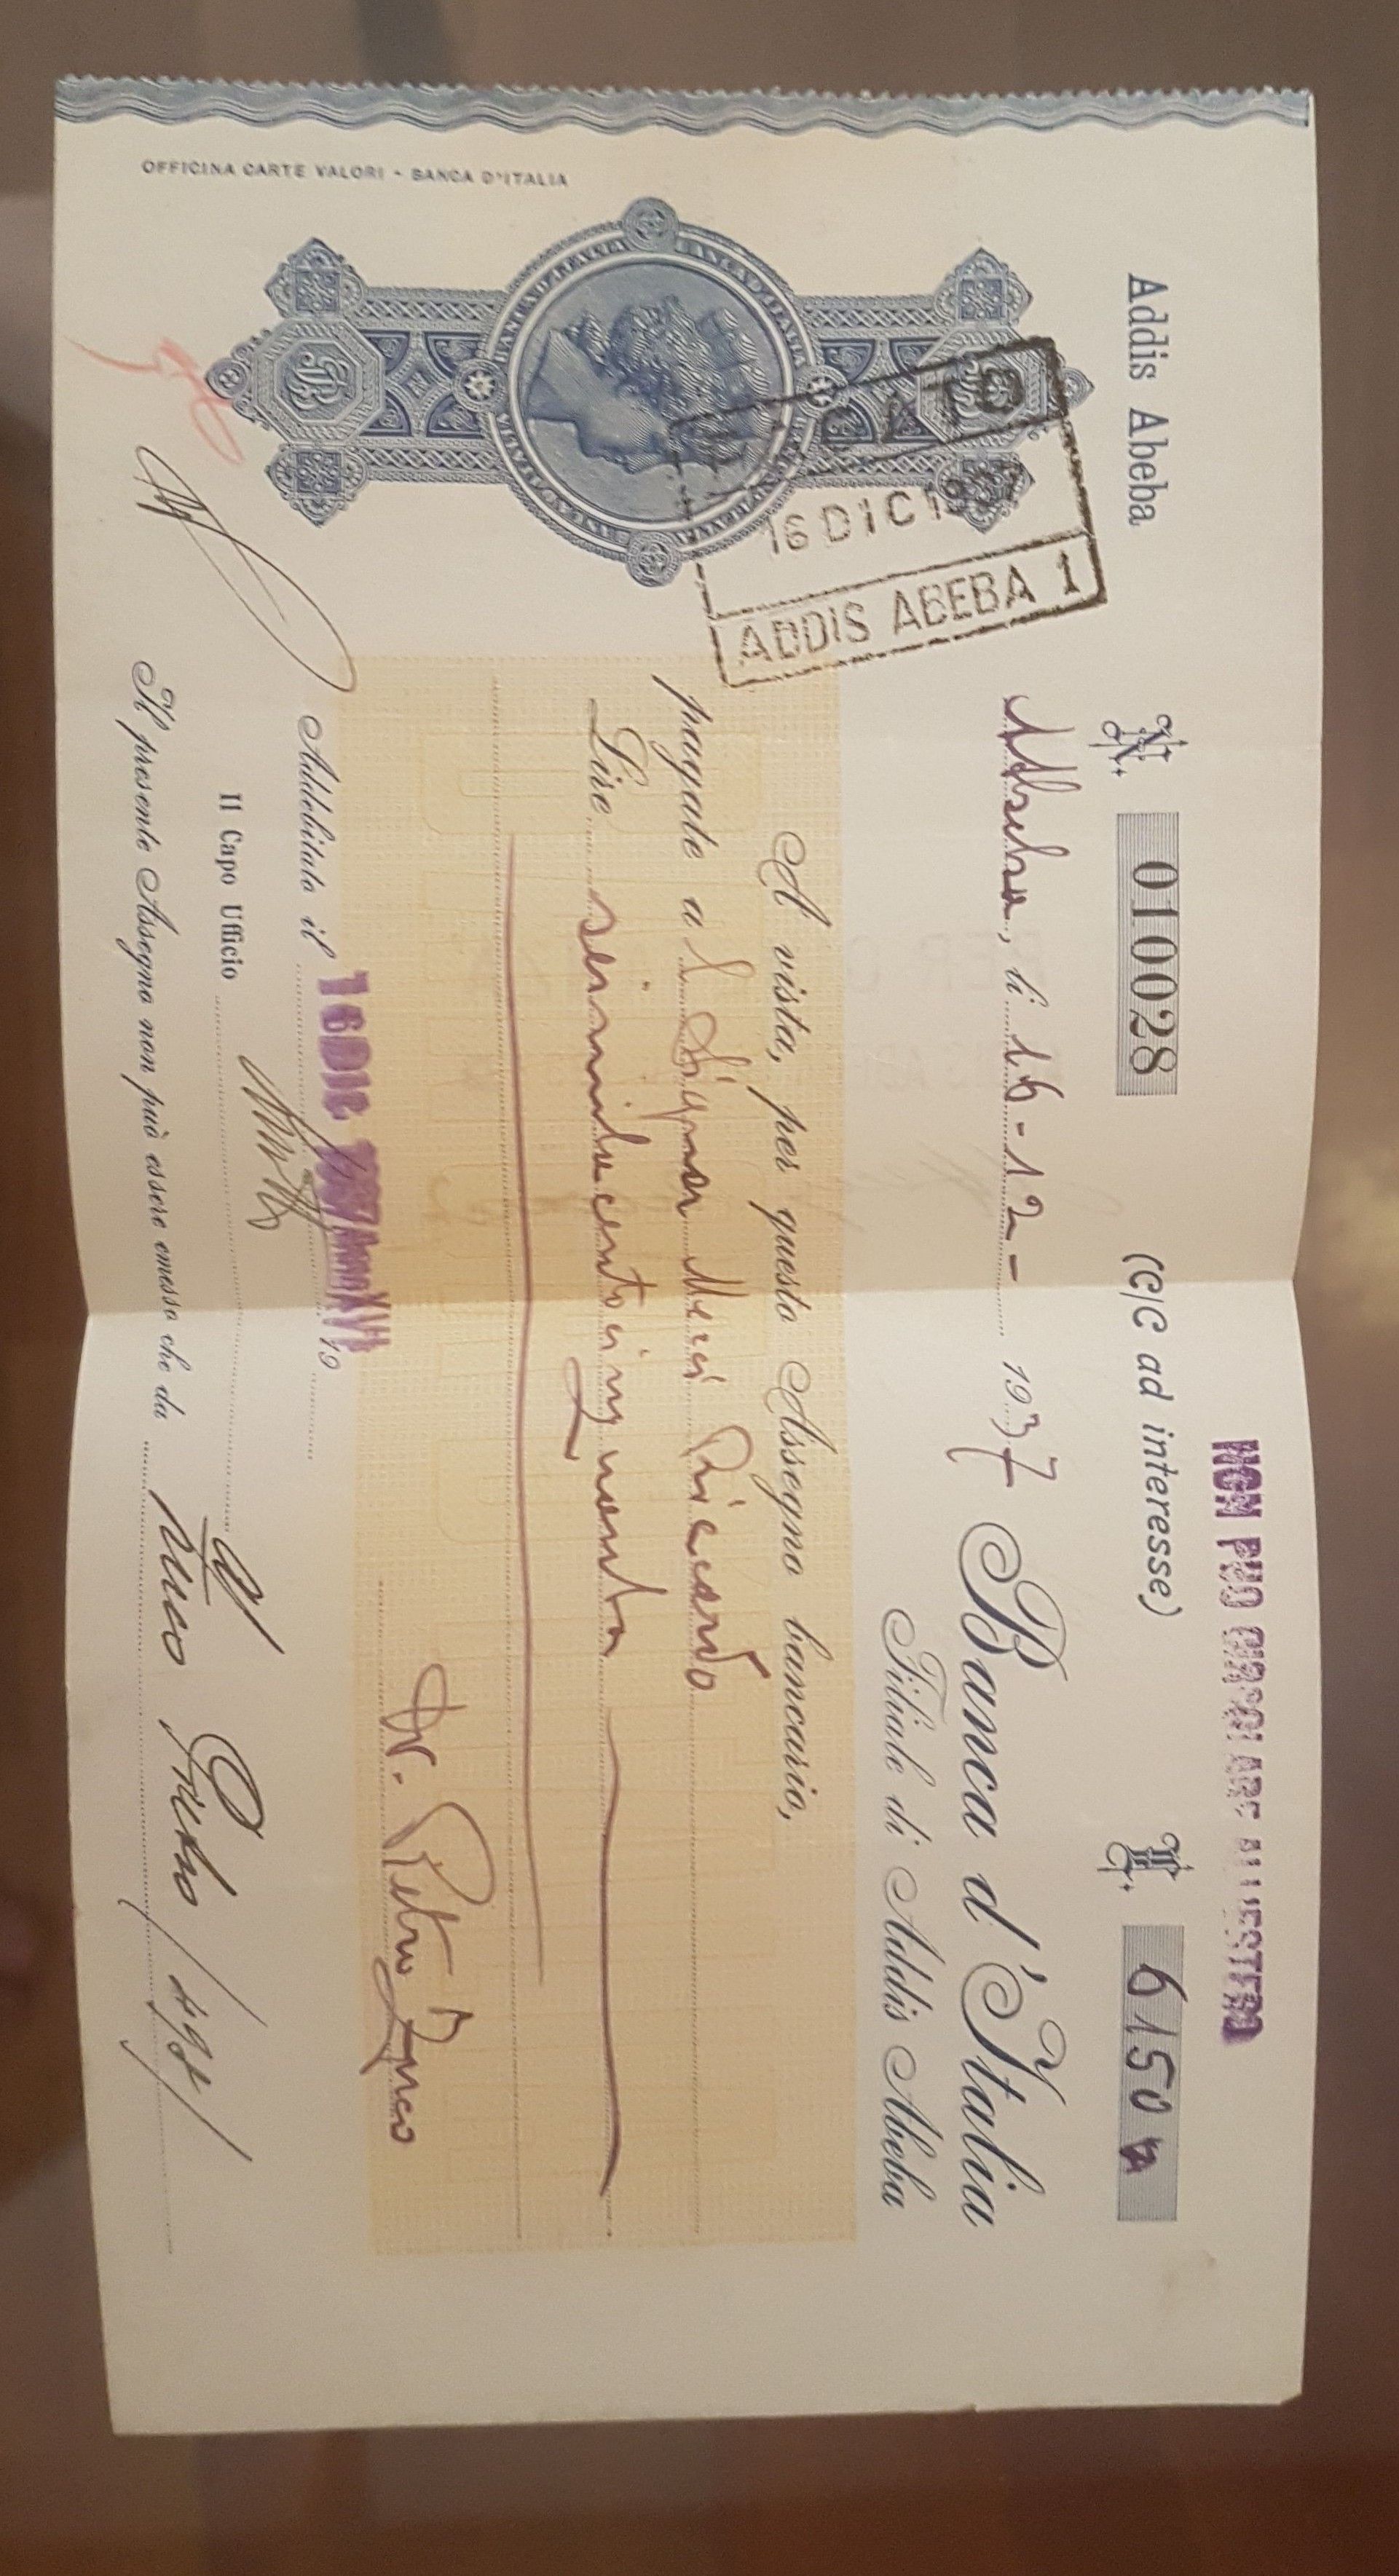 NON PUO CIRCOLARE ALL'ESTERO
Addis Abeba
N. 010028
(C/C ad interesse)
L. 6150
Abeba, li 16-12- 1937
Banca d'Italia
Filiale di Addis Abeba
A vista, per questo Assegno bancario,
pagate a l Signor Meci Riccardo
Lire seimilacentocinquanta
Dr. Pietro Zuco
16 DIC 1937
ADDIS ABEBA 1
BANCA D'ITALIA
Addebitato il 16 DIC 1937 Anno XVI 19
Il Capo Ufficio
Il presente Assegno non può essere emesso che da Zuco Pietro
OFFICINA CARTE VALORI - BANCA D'ITALIA